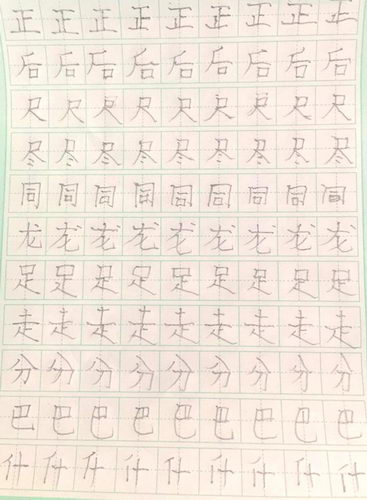 正正正正正正正正正
后后后后后后后后后
尺尺尺尺尺尺尺尺尺
尽尽尽尽尽尽尽尽尽
同同同同同同同同同
龙龙龙龙龙龙龙龙龙
足足足足足足足足足
走走走走走走走走走
分分分分分分分分分
巴巴巴巴巴巴巴巴巴
什什什什什什什什什